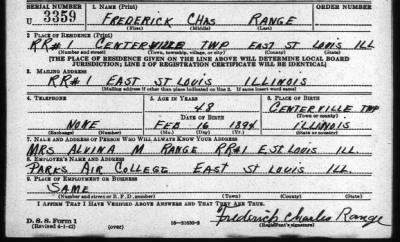 SERIAL NUMBER
1. NAME (Print)
ORDER NUMBER
U 3359
FREDERICK CHAS RANGE
(First) (Middle) (Last)
2. PLACE OF RESIDENCE (Print)
RR#1 CENTERVILLE TWP EAST ST LOUIS ILL
(Number and street) (Town, township, village, or city) (County) (State)
[THE PLACE OF RESIDENCE GIVEN ON THE LINE ABOVE WILL DETERMINE LOCAL BOARD
JURISDICTION; LINE 2 OF REGISTRATION CERTIFICATE WILL BE IDENTICAL]
3. MAILING ADDRESS
RR#1 EAST ST LOUIS ILLINOIS
[Mailing address if other than place indicated on line 2. If same insert word same]
4. TELEPHONE
5. AGE IN YEARS
6. PLACE OF BIRTH
48
CENTERVILLE TWP
DATE OF BIRTH
(Town or county)
NONE
FEB 16 1894
ILLINOIS
(Exchange) (Number) (Mo.) (Day) (Yr.) (State or country)
7. NAME AND ADDRESS OF PERSON WHO WILL ALWAYS KNOW YOUR ADDRESS
MRS ALVINA M RANGE RR#1 E ST. LOUIS ILL.
8. EMPLOYER'S NAME AND ADDRESS
PARKS AIR COLLEGE EAST ST LOUIS ILL.
9. PLACE OF EMPLOYMENT OR BUSINESS
SAME
(Number and street or R. F. D. number) (Town) (County) (State)
I AFFIRM THAT I HAVE VERIFIED ABOVE ANSWERS AND THAT THEY ARE TRUE.
Frederick Charles Range
D. S. S. Form 1
(Revised 4-1-42) (over) (Registrant's signature)